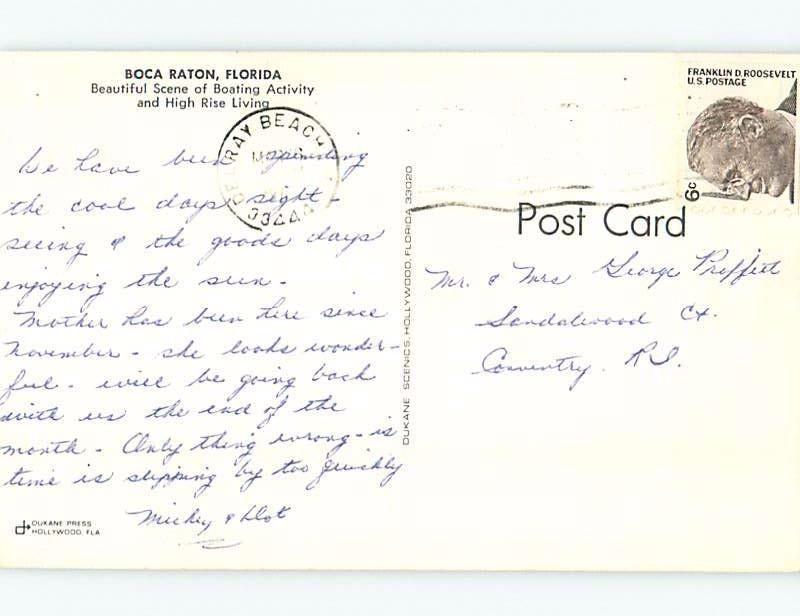 BOCA RATON, FLORIDA
Beautiful Scene of Boating Activity
and High Rise Living
DELRAY BEACH
33444
We have been spending
the cool days sight-
seeing & the goods days
enjoying the sun.
Mother has been here since
November - she looks wonder-
ful - will be going back
with us the end of the
month - Only thing wrong - is
time is slipping by too quickly
Mickey & Dot
DUKANE PRESS
HOLLYWOOD, FLA
DUKANE SCENICS, HOLLYWOOD, FLORIDA 33020
FRANKLIN D. ROOSEVELT
U.S. POSTAGE
6c
Post Card
Mr. & Mrs George Proffitt
Sandalwood Ct.
Coventry. R.I.